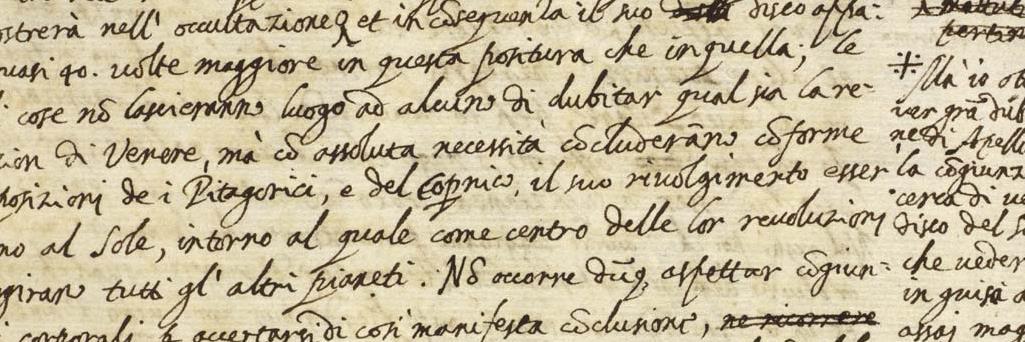 ostrerà nell' occultazione, et in cōsequenza il suo disco appa:
quasi 40. volte maggiore in questa positura che in quella; le
cose nō lascieranno luogo ad alcuno di dubitar qual sia la re-
zion di Venere, mà cō assoluta necessità cōcluderāno cōforme
posizioni de i Pitagorici, e del Copnico, il suo rivolgimento esser
no al Sole, intorno al quale come centro delle lor revoluzioni
girano tutti gl' altri pianeti. Nō occorre dūq, aspettar cōgiun:
corporali p accertarsi di cosi manifesta cōclusione, ne ricorrere
Ma io
la cōgiunz
cerca di
disco del
che veder
in guisa
assai mag